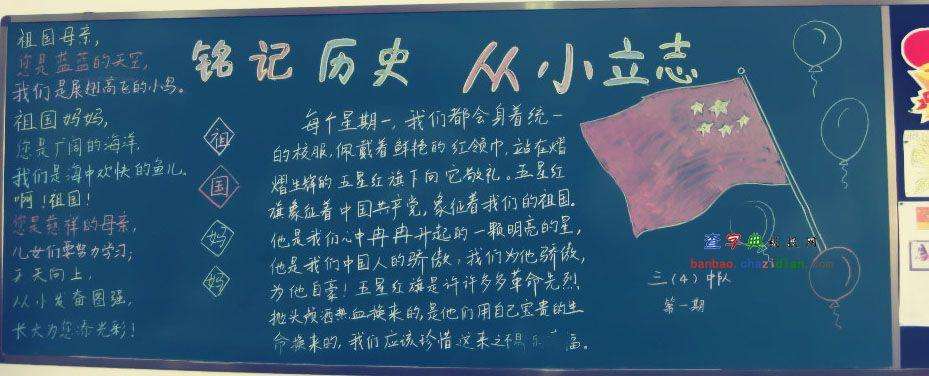 铭记历史 从小立志
祖国母亲,
您是蓝蓝的天空,
我们是展翅高飞的小鸟。
祖国妈妈,
您是广阔的海洋,
我们是海中欢快的鱼儿。
啊!祖国!
您是慈祥的母亲,
儿女们要努力学习,
天天向上,
从小发奋图强,
长大为您添光彩!
祖
国
妈
妈
每个星期一,我们都会身着统一
的校服,佩戴着鲜艳的红领巾,站在熠
熠生辉的五星红旗下向它敬礼。五星红
旗象征着中国共产党,象征着我们的祖国。
他是我们心中冉冉升起的一颗明亮的星,
他是我们中国人的骄傲,我们为他骄傲,
为他自豪!五星红旗是许许多多革命先烈
抛头颅洒热血换来的,是他们用自己宝贵的生
命换来的,我们应该珍惜这来之不易的幸福。
三(4)中队
第一期
查字典板报网
banbao.chazidian.com